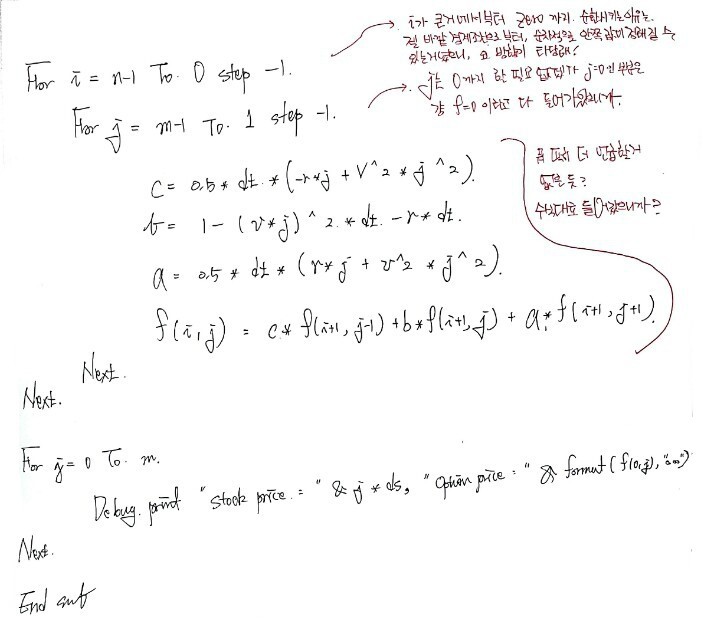 For i = n-1 To. 0 step -1.
For j = m-1 To. 1 step -1.
c = 0.5 * dt. * (-r*j + V^2 * j^2).
b = 1 - (v*j)^2. * dt. - r* dt.
a = 0.5 * dt * (r* j + v^2 * j^2).
f(i,j) = c* f(i+1, j-1) + b* f(i+1, j) + a* f(i+1, j+1).
Next.
Next.
i가 큰거에서부터 zero 까지. 순환시키는이유는.
젤 바깥 경계조건으로부터, 순차적으로 안쪽값이 정해질 수
있는거였으니, 요 방향이 타당해!
j는 0까지 할 필요 없던게 j=0인 부분은
걍 f=0 이라고 다 들어가있으니까.
더
없을듯?
수식대로 들어갔으니까?
For j = 0 To. m.
Debug. print "stock price. = " & j * ds, "Option price = " & format ( f(0,j),
Next.
End sub